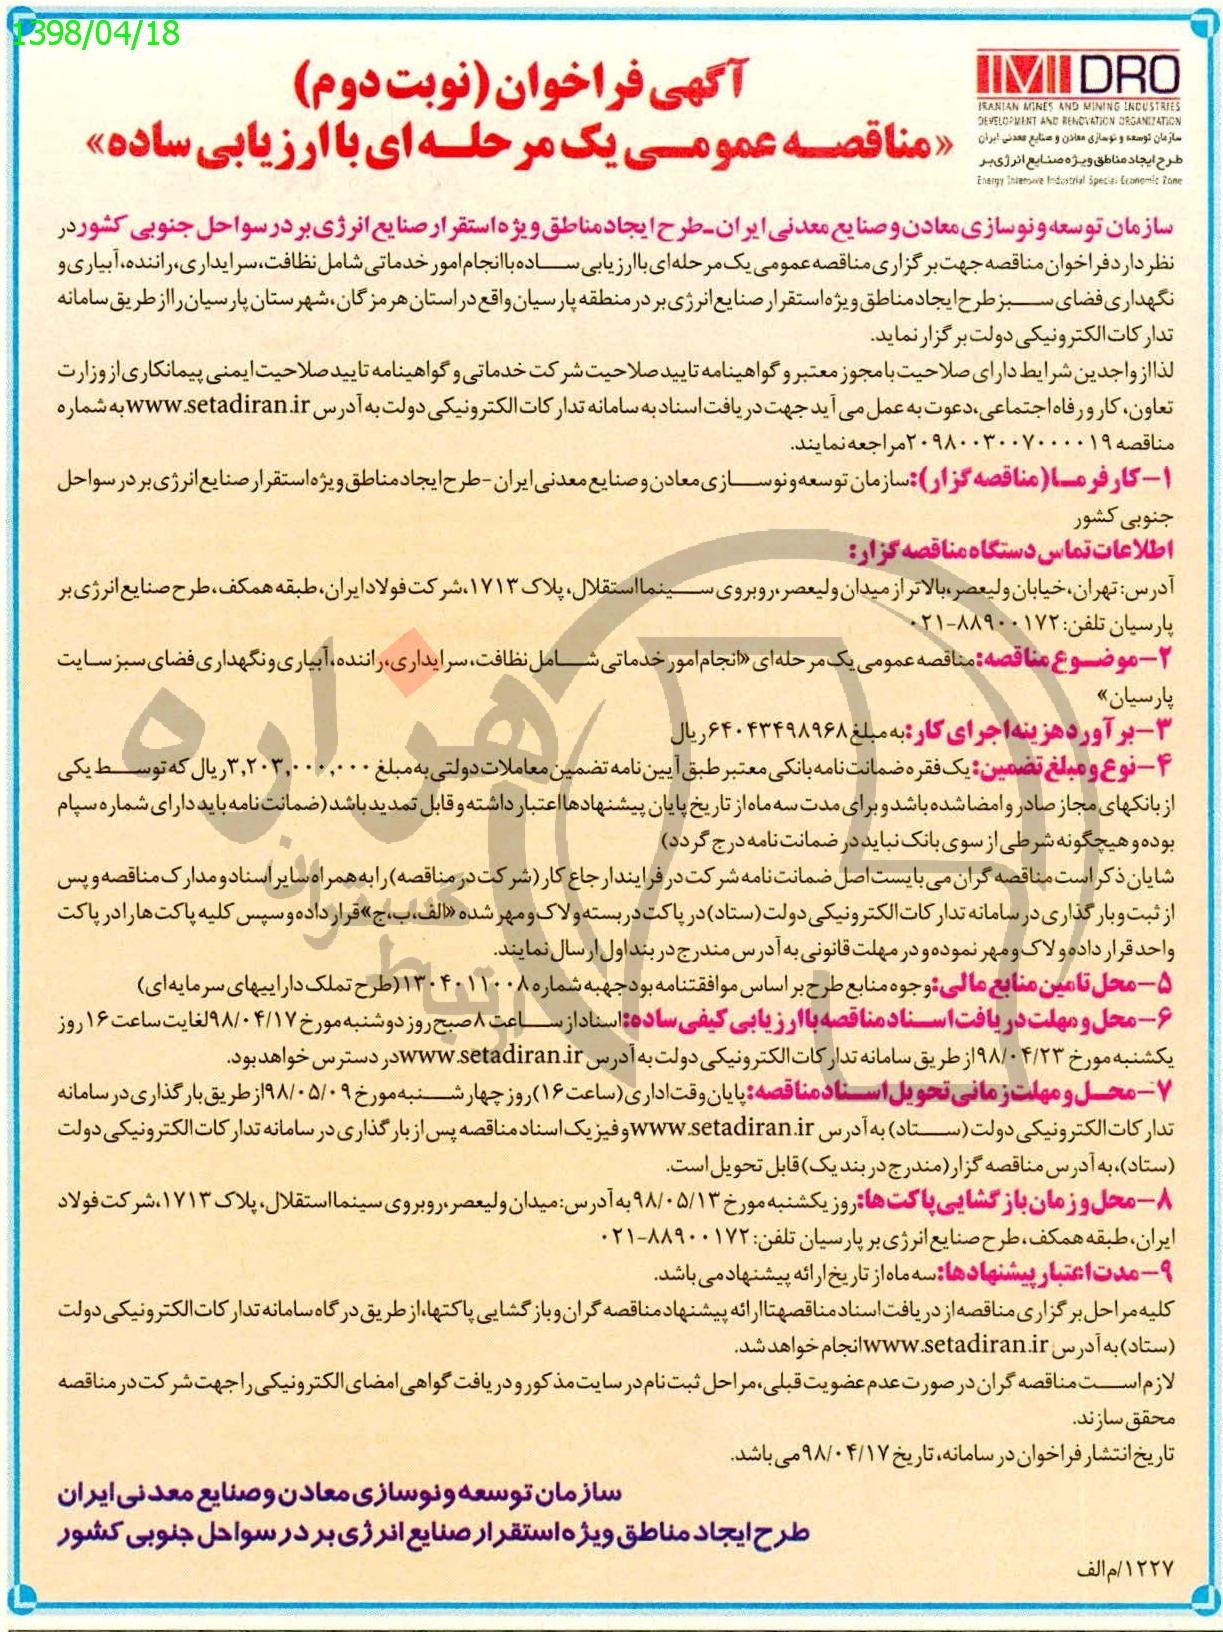 1398/04/18
IMIDRO
IRANIAN MINES AND MINING INDUSTRIES
DEVELOPMENT AND RENOVATION ORGANIZATION
سازمان توسعه و نوسازی معادن و صنایع معدنی ایران
طرح ایجاد مناطق ویژه صنایع انرژی بر
Energy Intensive Industrial Special Economic Zone
آگهی فراخوان (نوبت دوم)
«مناقصه عمومی یک مرحله ای با ارزیابی ساده»
سازمان توسعه و نوسازی معادن و صنایع معدنی ایران-طرح ایجاد مناطق ویژه استقرار صنایع انرژی بر در سواحل جنوبی کشور در
نظر دارد فراخوان مناقصه جهت برگزاری مناقصه عمومی یک مرحله ای با ارزیابی ساده با انجام امور خدماتی شامل نظافت، سرایداری، راننده، آبیاری و
نگهداری فضای سبز طرح ایجاد مناطق ویژه استقرار صنایع انرژی بر در منطقه پارسیان واقع در استان هرمزگان، شهرستان پارسیان را از طریق سامانه
تدارکات الکترونیکی دولت برگزار نماید.
لذا از واجدین شرایط دارای صلاحیت با مجوز معتبر و گواهینامه تایید صلاحیت شرکت خدماتی و گواهینامه تایید صلاحیت ایمنی پیمانکاری از وزارت
تعاون، کار و رفاه اجتماعی، دعوت به عمل می آید جهت دریافت اسناد به سامانه تدارکات الکترونیکی دولت به آدرس www.setadiran.ir به شماره
مناقصه ۲۰۹۸۰۰۳۰۰۷۰۰۰۰۱۹ مراجعه نمایند.
۱- کارفرما (مناقصه گزار): سازمان توسعه و نوسازی معادن و صنایع معدنی ایران - طرح ایجاد مناطق ویژه استقرار صنایع انرژی بر در سواحل
جنوبی کشور
اطلاعات تماس دستگاه مناقصه گزار:
آدرس: تهران، خیابان ولیعصر، بالاتر از میدان ولیعصر، روبروی سینما استقلال، پلاک ۱۷۱۳، شرکت فولاد ایران، طبقه همکف، طرح صنایع انرژی بر
پارسیان تلفن: ۸۸۹۰۰۱۷۲-۰۲۱
۲- موضوع مناقصه: مناقصه عمومی یک مرحله ای «انجام امور خدماتی شامل نظافت، سرایداری، راننده، آبیاری و نگهداری فضای سبز سایت
پارسیان»
۳- برآورد هزینه اجرای کار: به مبلغ ۶۴۰۴۳۴۹۸۹۶۸ ریال
۴- نوع و مبلغ تضمین: یک فقره ضمانت نامه بانکی معتبر طبق آیین نامه تضمین معاملات دولتی به مبلغ ۳,۲۰۳,۰۰۰,۰۰۰ ریال که توسط یکی
از بانکهای مجاز صادر و امضا شده باشد و برای مدت سه ماه از تاریخ پایان پیشنهادها اعتبار داشته و قابل تمدید باشد (ضمانت نامه باید دارای شماره سپام
بوده و هیچگونه شرطی از سوی بانک نباید در ضمانت نامه درج گردد)
شایان ذکر است مناقصه گران می بایست اصل ضمانت نامه شرکت در فرایند ارجاع کار (شرکت در مناقصه) را به همراه سایر اسناد و مدارک مناقصه و پس
از ثبت و بارگذاری در سامانه تدارکات الکترونیکی دولت (ستاد) در پاکت در بسته و لاک و مهر شده «الف، ب، ج» قرار داده و سپس کلیه پاکت ها را در پاکت
واحد قرار داده و لاک و مهر نموده و در مهلت قانونی به آدرس مندرج در بند اول ارسال نمایند.
۵- محل تامین منابع مالی: وجوه منابع طرح بر اساس موافقتنامه بودجه به شماره ۱۳۰۴۰۱۱۰۰۸ (طرح تملک داراییهای سرمایه ای)
۶- محل و مهلت دریافت اسناد مناقصه با ارزیابی کیفی ساده: اسناد از ساعت ۸ صبح روز دوشنبه مورخ ۹۸/۰۴/۱۷ لغایت ساعت ۱۶ روز
یکشنبه مورخ ۹۸/۰۴/۲۳ از طریق سامانه تدارکات الکترونیکی دولت به آدرس www.setadiran.ir در دسترس خواهد بود.
۷- محل و مهلت زمانی تحویل اسناد مناقصه: پایان وقت اداری (ساعت ۱۶) روز چهارشنبه مورخ ۹۸/۰۵/۰۹ از طریق بارگذاری در سامانه
تدارکات الکترونیکی دولت (ستاد) به آدرس www.setadiran.ir و فیزیک اسناد مناقصه پس از بارگذاری در سامانه تدارکات الکترونیکی دولت
(ستاد)، به آدرس مناقصه گزار (مندرج در بند یک) قابل تحویل است.
۸- محل و زمان بازگشایی پاکت ها: روز یکشنبه مورخ ۹۸/۰۵/۱۳ به آدرس: میدان ولیعصر، روبروی سینما استقلال، پلاک ۱۷۱۳، شرکت فولاد
ایران، طبقه همکف، طرح صنایع انرژی بر پارسیان تلفن: ۸۸۹۰۰۱۷۲-۰۲۱
۹- مدت اعتبار پیشنهادها: سه ماه از تاریخ ارائه پیشنهاد می باشد.
کلیه مراحل برگزاری مناقصه از دریافت اسناد مناقصه تا ارائه پیشنهاد مناقصه گران و بازگشایی پاکتها، از طریق درگاه سامانه تدارکات الکترونیکی دولت
(ستاد) به آدرس www.setadiran.ir انجام خواهد شد.
لازم است مناقصه گران در صورت عدم عضویت قبلی، مراحل ثبت نام در سایت مذکور و دریافت گواهی امضای الکترونیکی را جهت شرکت در مناقصه
محقق سازند.
تاریخ انتشار فراخوان در سامانه، تاریخ ۹۸/۰۴/۱۷ می باشد.
سازمان توسعه و نوسازی معادن و صنایع معدنی ایران
طرح ایجاد مناطق ویژه استقرار صنایع انرژی بر در سواحل جنوبی کشور
۱۲۲۷/م الف
هزاره